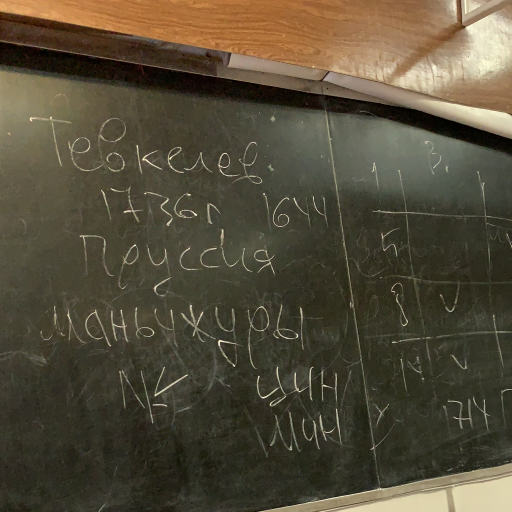 Тевкелев.
1736г 1644
Пруссия
маньчжуры
цин
мин
3.
1
5
8 v
14 v
1714 г